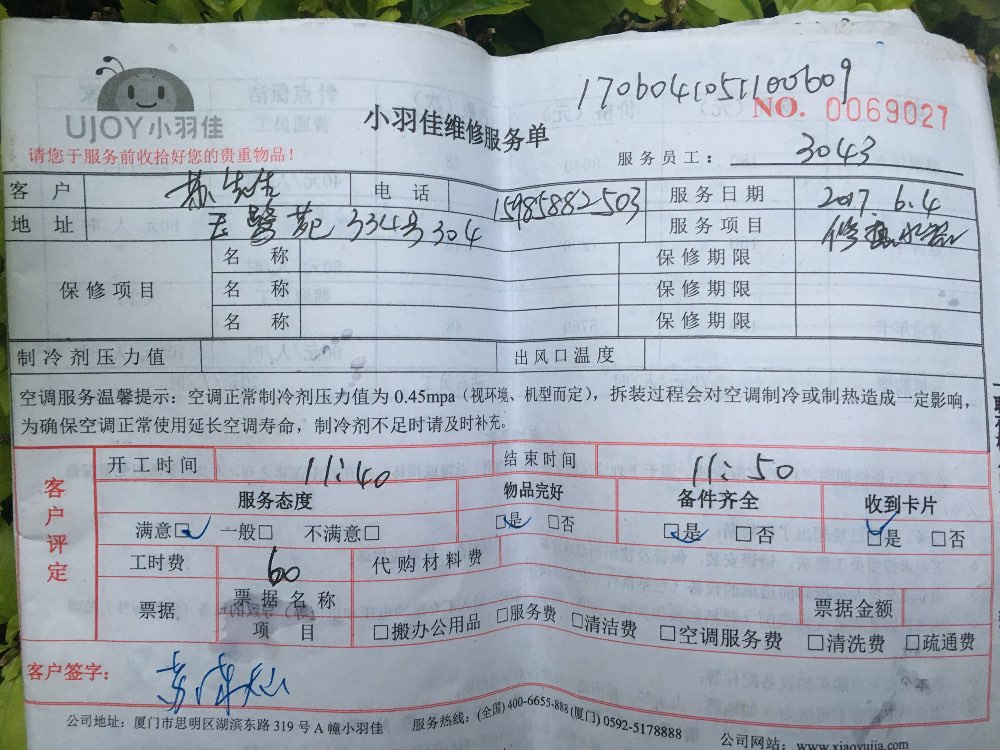 1706041051100609
UJOY小羽佳
小羽佳维修服务单
NO. 0069027
请您于服务前收拾好您的贵重物品！
服务员工： 3043
客 户 先生 电 话 15985882503 服务日期 2017.6.4
地 址 334号304 服务项目 修热水器
保修项目 名 称 保修期限
名 称 保修期限
名 称 保修期限
制冷剂压力值 出风口温度
空调服务温馨提示：空调正常制冷剂压力值为 0.45mpa（视环境、机型而定），拆装过程会对空调制冷或制热造成一定影响，
为确保空调正常使用延长空调寿命，制冷剂不足时请及时补充。
客户评定
开工时间 11:40 结束时间 11:50
服务态度 物品完好 备件齐全 收到卡片
满意□ 一般□ 不满意□ □是 □否 □是 □否 □是 □否
工时费 60 代购材料费
票据 票据名称 票据金额
项 目 □搬办公用品 □服务费 □清洁费 □空调服务费 □清洗费 □疏通费
客户签字：
公司地址：厦门市思明区湖滨东路 319 号 A 幢小羽佳 服务热线：(全国) 400-6655-888 (厦门) 0592-5178888
公司网站：www.xiaoyujia.com